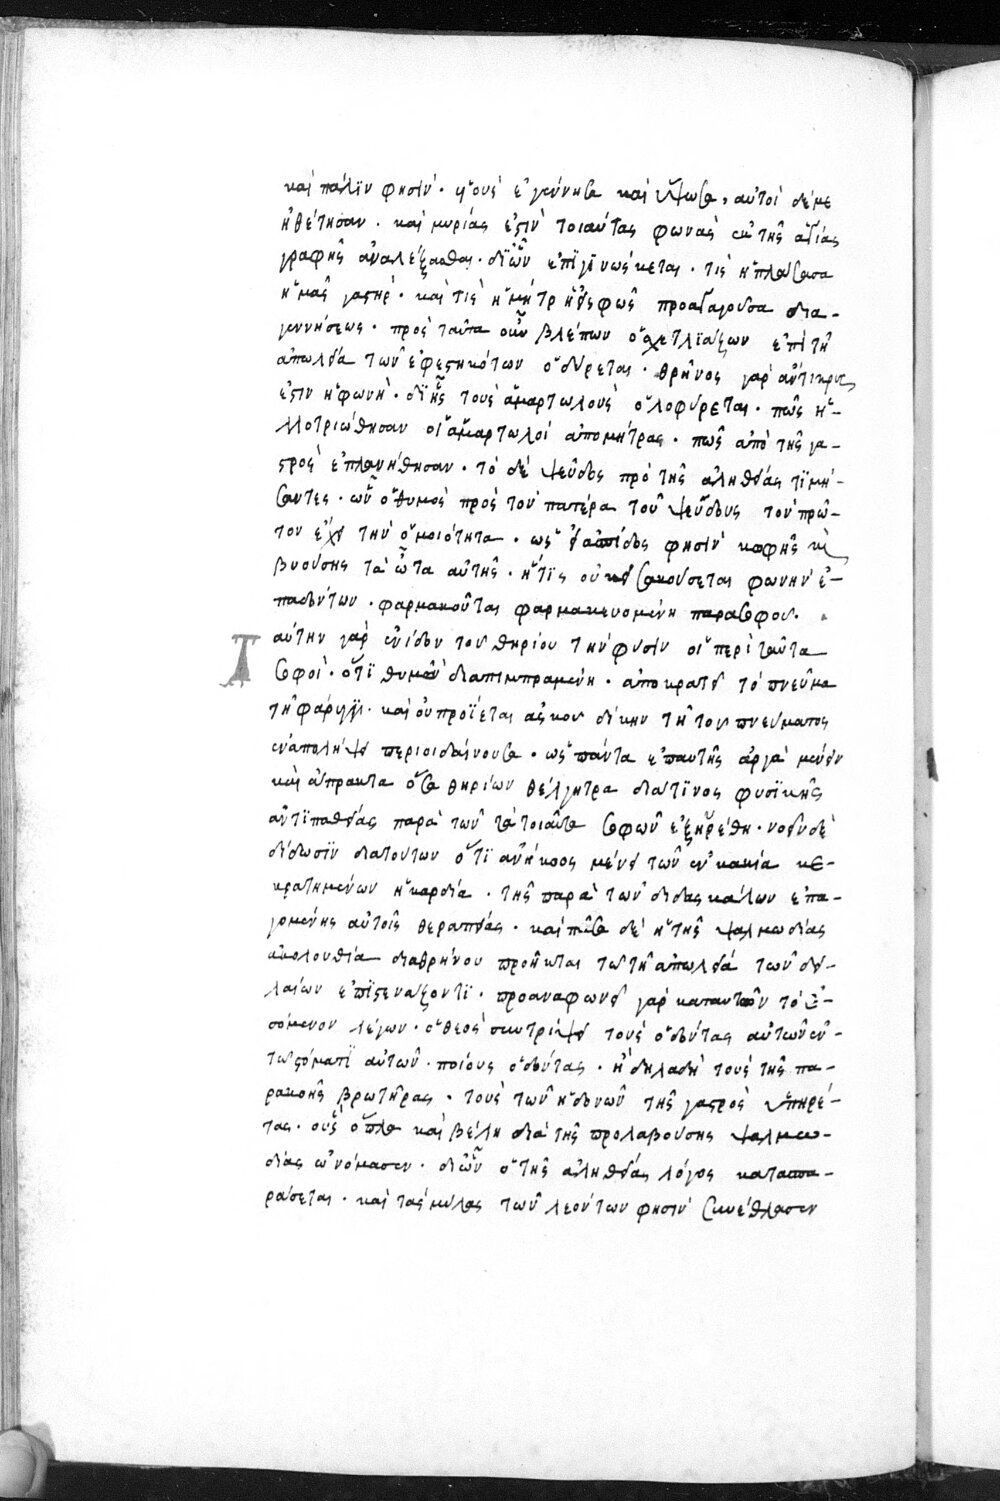 καὶ πάλιν φησίν· υἱοὺς ἐγέννησα καὶ ὕψωσα, αὐτοὶ δέ με
ἠθέτησαν· καὶ μυρίας ἐστὶν τοιαύτας φωνὰς ἐκ τῆς ἁγίας
γραφῆς ἀναλέξασθαι· δι' ὧν ἐπιγινώσκεται· τίς ἡ πλάσασα
ἡμᾶς γαστήρ· καὶ τίς ἡ μήτρα ἡ εἰς φῶς προσάγουσα δια-
γεννήσεως· πρὸς ταῦτα οὖν βλέπων ὁ σχετλιάζων ἐπὶ τῇ
ἀπωλείᾳ τῶν ἐφεστηκότων ὀδύρεται· θρῆνος γὰρ ἄντικρυς
ἐστιν ἡ φωνὴ· δι' ἧς τοὺς ἁμαρτωλοὺς ὀλοφύρεται· πῶς ἠ-
λλοτριώθησαν οἱ ἁμαρτωλοὶ ἀπὸ μήτρας· πῶς ἀπὸ τῆς γα-
στρὸς ἐπλανήθησαν· τὸ δὲ ψεῦδος πρὸ τῆς ἀληθείας τιμή-
σαντες· ὧν ὁ θυμὸς πρὸς τὸν πατέρα τοῦ ψεύδους τὸν πρῶ-
τον ἔχει τὴν ὁμοιότητα· ὡς εἰ ἀσπίδος φησὶν κωφῆς καὶ
βυούσης τὰ ὦτα αὐτῆς· ἥτις οὐκ εἰσακούσεται φωνὴν ἐ-
παδόντων· φαρμακοῦται φαρμακευομένη παρὰ σοφοῦ·
Ταύτην γὰρ ἐνεῖδον τοῦ θηρίου τὴν φύσιν οἱ περὶ ταῦτα
σοφοὶ· ὅτι θυμῷ διαπιμπραμένη· ἀποκρατεῖ τὸ πνεῦμα
τῇ φάρυγγι· καὶ οὐ προΐεται ἀσκοῦ δίκην τῇ τοῦ πνεύματος
ἐναπολήψει περιοιδαίνουσα· ὡς πάντα ἐπ' αὐτῆς ἀργὰ μένειν
καὶ ἄπρακτα ὅσα θηρίων θέλγητρα διά τινος φυσικῆς
ἀντιπαθείας παρὰ τῶν τὰ τοιαῦτα σοφῶν ἐξηυρέθη· νοεῖν δὲ
δίδωσιν διὰ τούτων ὅτι ἀνήκοος μένει τῶν ἐν κακίᾳ κε-
κρατημένων ἡ καρδία· τῆς παρὰ τῶν διδασκάλων ἐπα-
γομένης αὐτοῖς θεραπείας· καὶ πᾶσα δὲ ἡ τῆς ψαλμωδίας
ἀκολουθία διὰ θρήνου προῆκται τῷ τῇ ἀπωλείᾳ τῶν δει-
λαίων ἐπιστενάζοντι· προαναφωνεῖ γὰρ καταυτῶν τὸ ἐ-
σόμενον λέγων· ὁ θεὸς συντρίψει τοὺς ὀδόντας αὐτῶν ἐν
τῷ στόματι αὐτῶν· ποίους ὀδόντας· ἢ δηλαδὴ τοὺς τῆς πα-
ρακοῆς βρωτῆρας· τοὺς τῶν ἡδονῶν τῆς γαστρὸς ὑπηρέ-
τας· οὓς ὅπλα καὶ βέλη διὰ τῆς προλαβούσης ψαλμω-
δίας ὠνόμασεν· δι' ὧν ὁ τῆς ἀληθείας λόγος κατασπα-
ράσσεται· καὶ τὰς μύλας τῶν λεόντων φησὶν συνέθλασεν